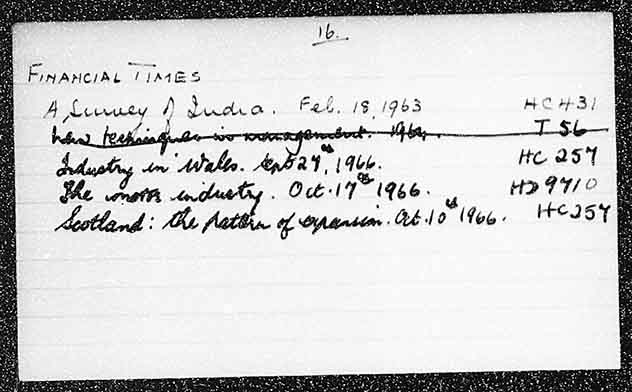 16.
FINANCIAL TIMES
A Survey of India. Feb. 18, 1963 HC431
New techniques in management. 1964. T 56
Industry in Wales. Sept 27th, 1966. HC 257
The motor industry. Oct. 17th 1966. HD 9710
Scotland: the pattern of expansion. Oct. 10th 1966. HC257